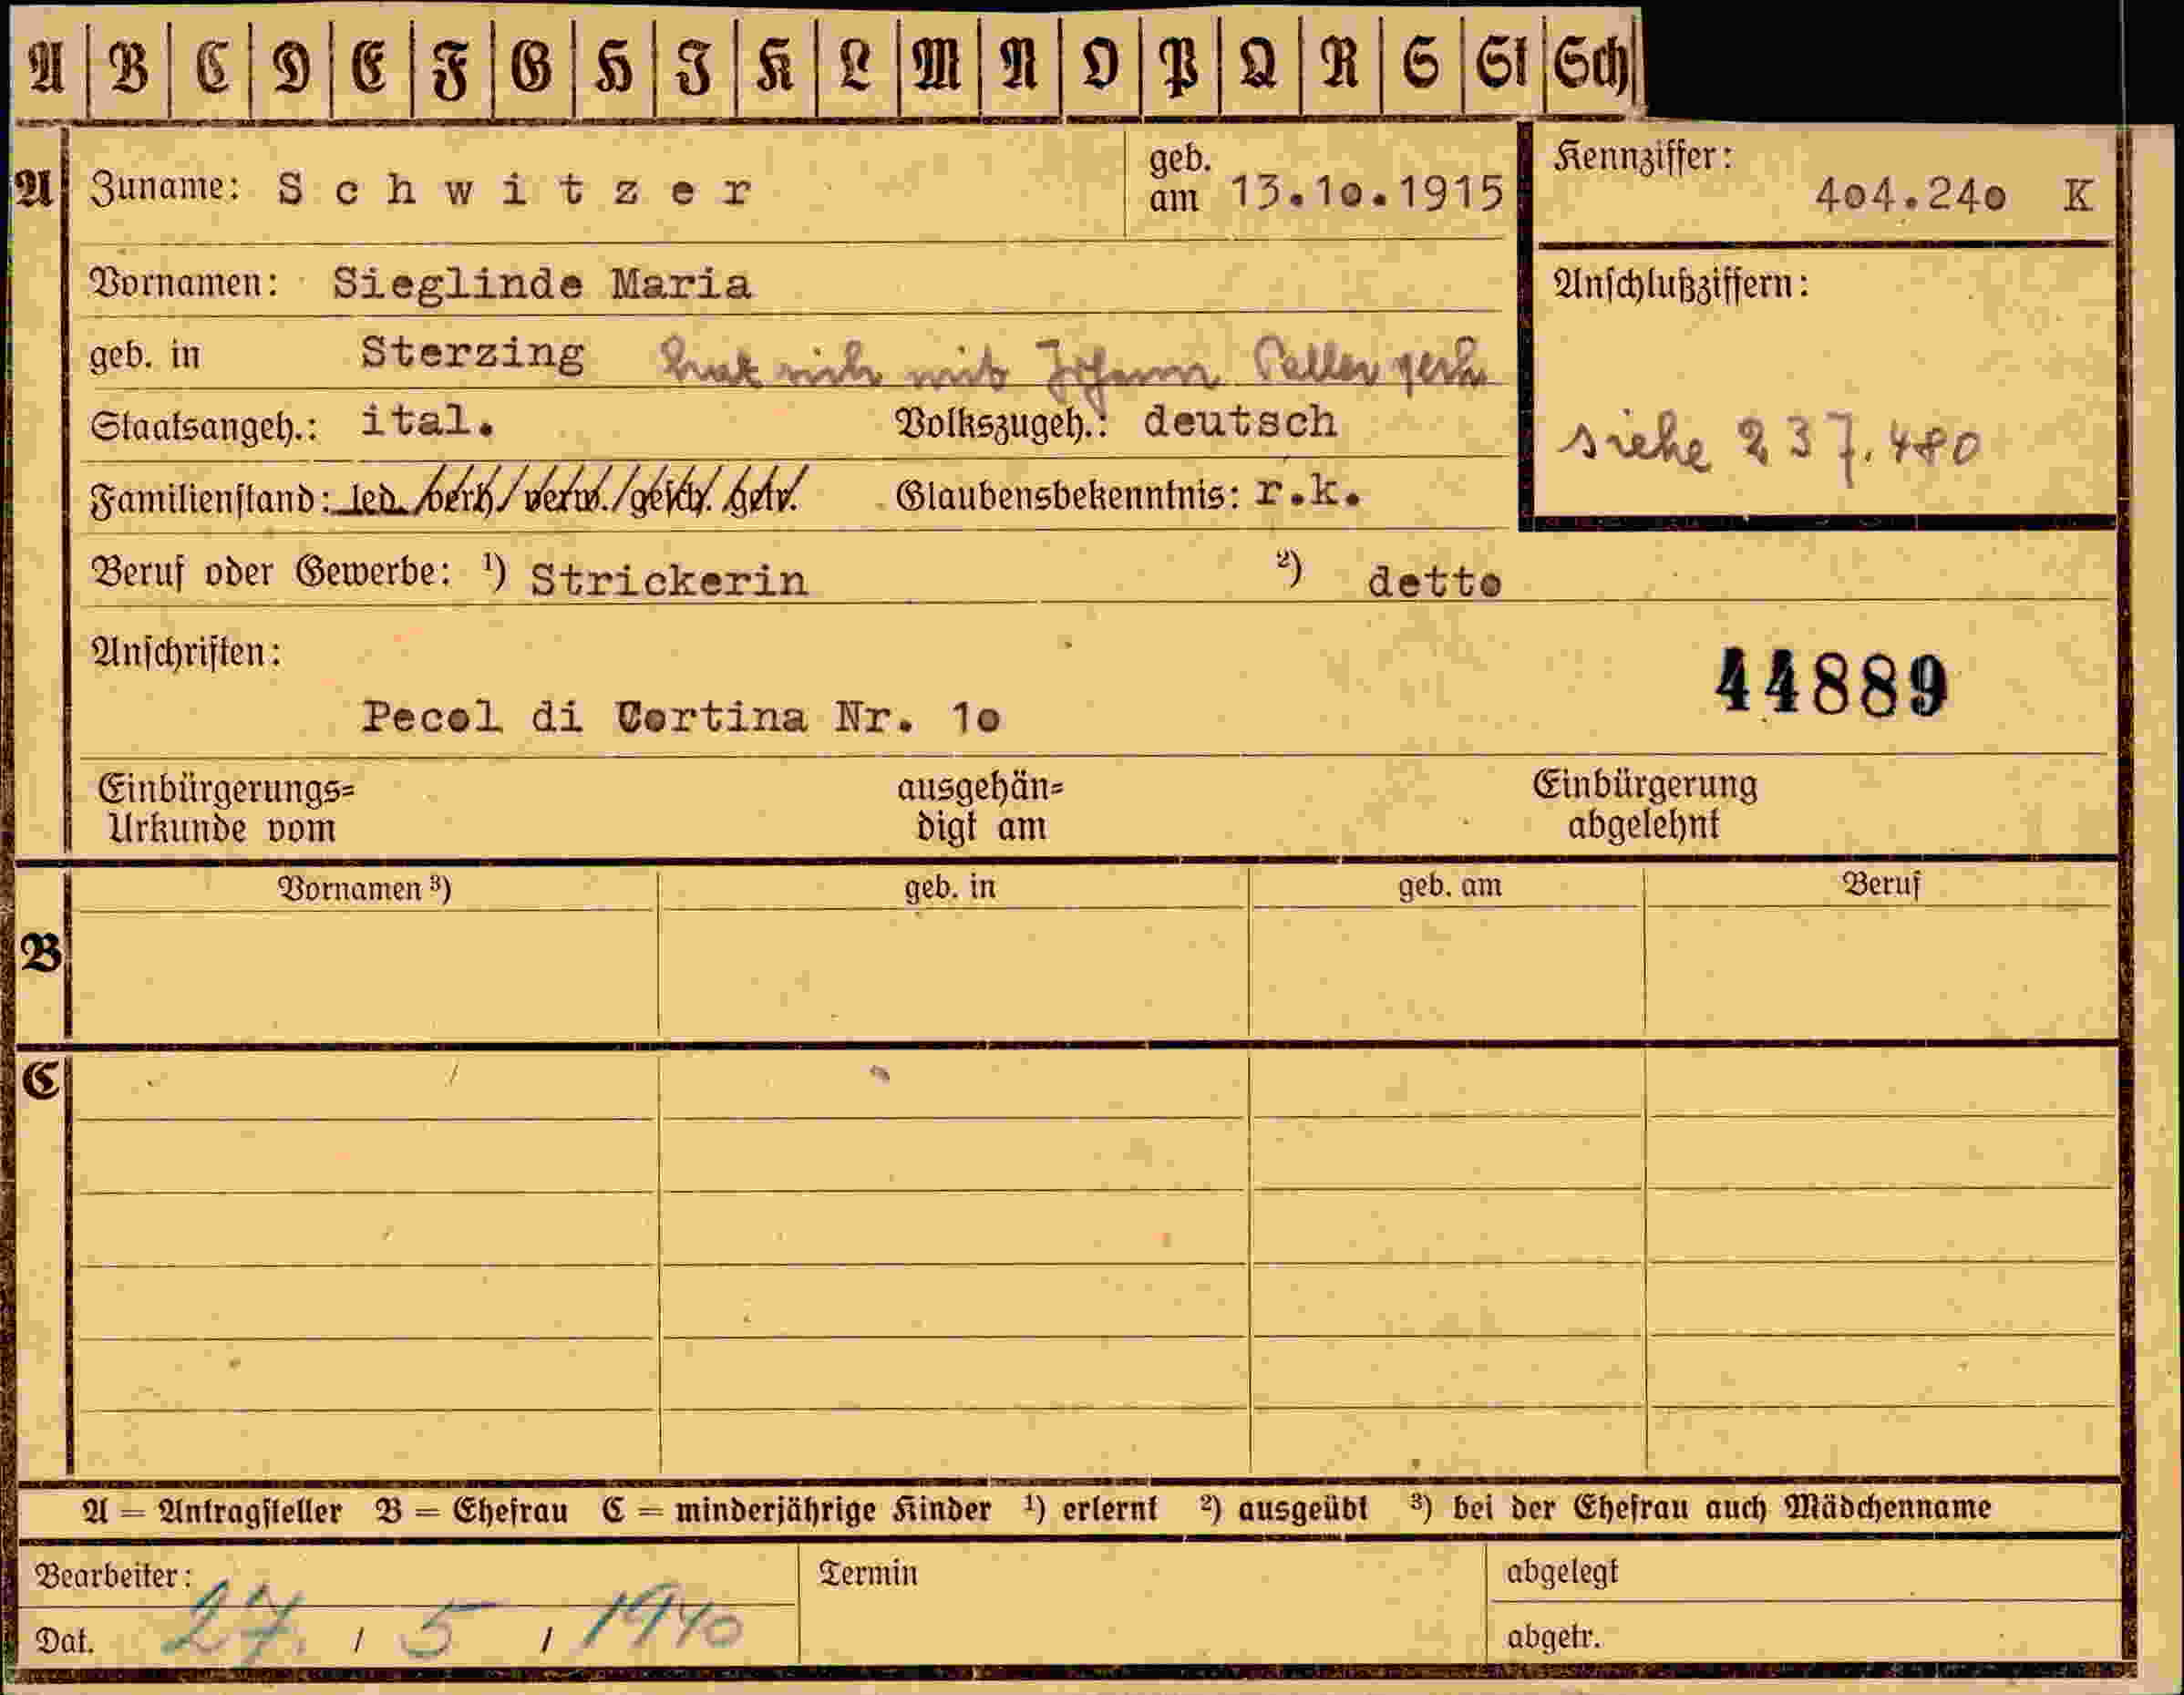 A B C D E F G H I K L M N O P Q R S St Sch
A Zuname: Schwitzer geb. am 13.10.1915 Kennziffer: 404.240 K
Vornamen: Sieglinde Maria Anschlußziffern:
geb. in Sterzing hat sich mit Johann verh.
siehe 237.480
Staatsangeh.: ital. Volkszugeh.: deutsch
Familienstand: led. /verh./verw./gesch. getr. Glaubensbekenntnis: r.k.
Beruf oder Gewerbe: ¹) Strickerin ²) detto
Anschriften:
44889
Pecol di Cortina Nr. 10
Einbürgerungs= ausgehän= Einbürgerung
Urkunde vom digt am abgelehnt
Vornamen ³) geb. in geb. am Beruf
B
C
A = Antragsteller B = Ehefrau C = minderjährige Kinder ¹) erlernt ²) ausgeübt ³) bei der Ehefrau auch Mädchenname
Bearbeiter: Termin abgelegt
Dat. 27. / 5 / 1940 abgetr.